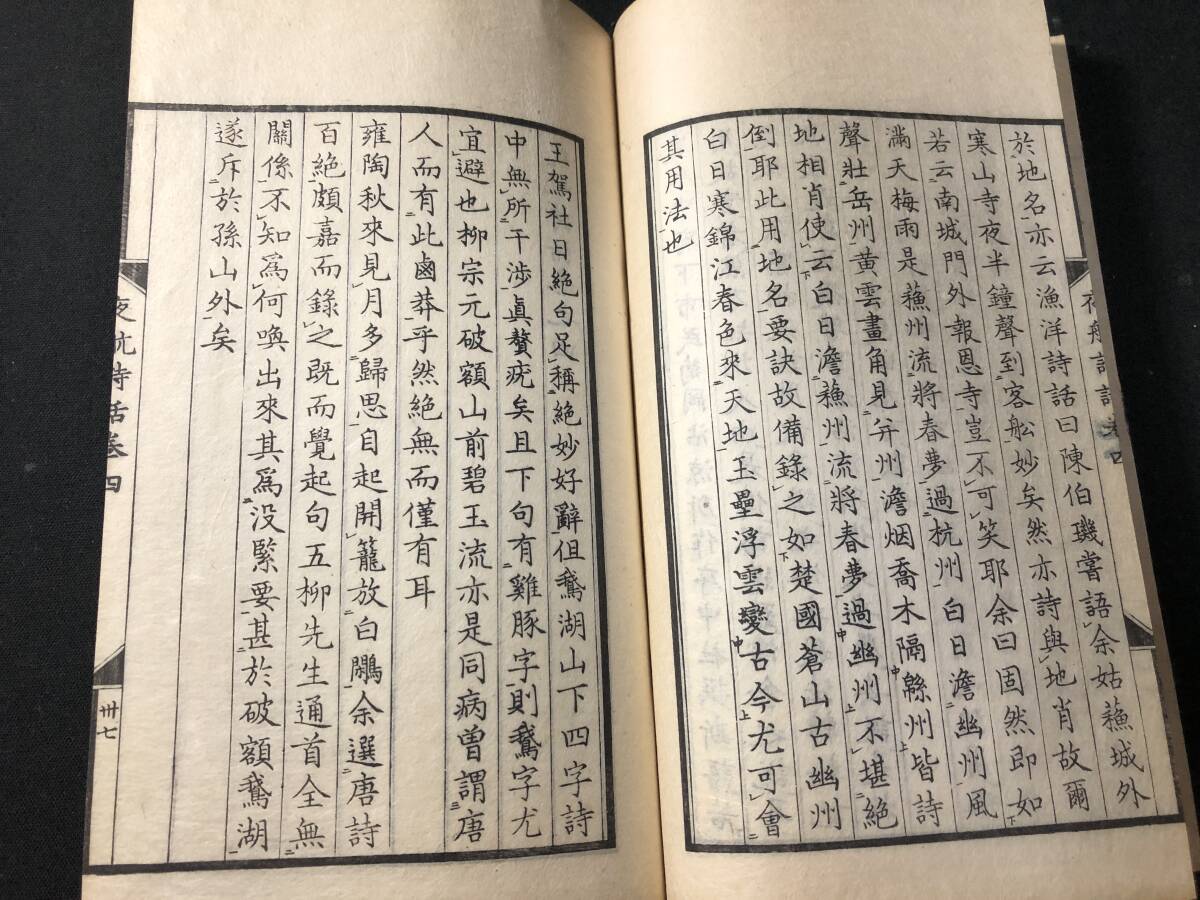 於地名亦云漁洋詩話曰陳伯璣嘗語余姑蘓城外
寒山寺夜半鐘聲到客舩妙矣然亦詩與地肖故爾
若云南城門外報恩寺豈不可笑耶余曰固然即如
滿天梅雨是蘓州流將春夢過杭州白日澹幽州風
聲壯岳州黄雲畫角見并州澹烟喬木隔緜州皆詩
地相肖使云白日澹蘓州流將春夢過幽州不堪絶
倒耶此用地名要訣故備錄之如楚國蒼山古幽州
白日寒錦江春色來天地玉壘浮雲變古今尤可會
其用法也
王駕社日絶句足稱絶妙好辭但鵞湖山下四字詩
中無所干渉眞贅疣矣且下句有雞豚字則鵞字尤
宜避也柳宗元破額山前碧玉流亦是同病曽謂唐
人而有此鹵莽乎然絶無而僅有耳
雍陶秋來見月多歸思自起開籠放白鷴余選唐詩
百絶頗嘉而錄之既而覺起句五柳先生通首全無
關係不知爲何喚出來其爲没緊要甚於破額鵞湖
遂斥於孫山外矣
夜航詩話卷四
卅七